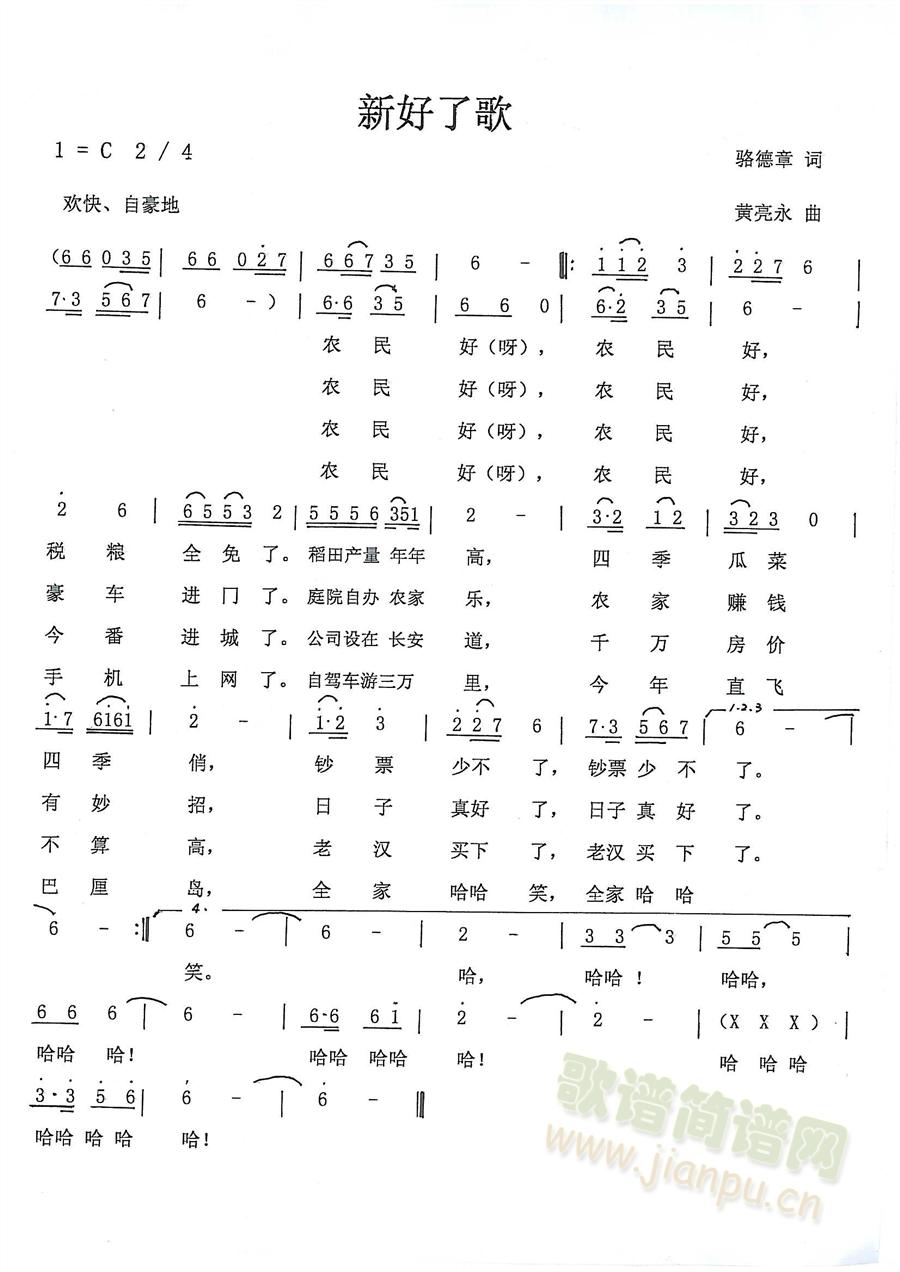 新好了歌
1 = C 2 / 4
骆德章 词
欢快、自豪地
黄亮永 曲
(6 6 0 3 5 | 6 6 0 2 7 | 6 6 7 3 5 | 6 - ‖: 1 1 2 3 | 2 2 7 6 |
7·3 5 6 7 | 6 - ) | 6·6 3 5 | 6 6 0 | 6·2 3 5 | 6 - |
农 民 好(呀), 农 民 好,
农 民 好(呀), 农 民 好,
农 民 好(呀), 农 民 好,
农 民 好(呀), 农 民 好,
2 6 | 6 5 5 3 2 | 5 5 5 6 351 | 2 - | 3·2 1 2 | 3 2 3 0 |
税 粮 全 免 了。 稻田产量 年年 高, 四 季 瓜 菜
豪 车 进 门 了。 庭院自办 农家 乐, 农 家 赚 钱
今 番 进 城 了。 公司设在 长安 道, 千 万 房 价
手 机 上 网 了。 自驾车游三万 里, 今 年 直 飞
1·7 6161 | 2 - | 1·2 3 | 2 2 7 6 | 7·3 5 6 7 | 1.2.3 6 - |
四 季 俏, 钞 票 少不 了, 钞票 少 不 了。
有 妙 招, 日 子 真好 了, 日子 真 好 了。
不 算 高, 老 汉 买下 了, 老汉 买 下 了。
巴 厘 岛, 全 家 哈哈 笑, 全家 哈 哈
6 - :‖ 4. 6 - | 6 - | 2 - | 3 3 3 | 5 5 5 |
笑。 哈, 哈哈 ! 哈哈,
6 6 6 | 6 - | 6·6 6 1 | 2 - | 2 - | (X X X) |
哈哈 哈! 哈哈 哈哈 哈! 哈 哈哈
3·3 5 6 | 6 - | 6 - ‖
哈哈 哈 哈 哈!
歌谱简谱网
www.jianpu.cn